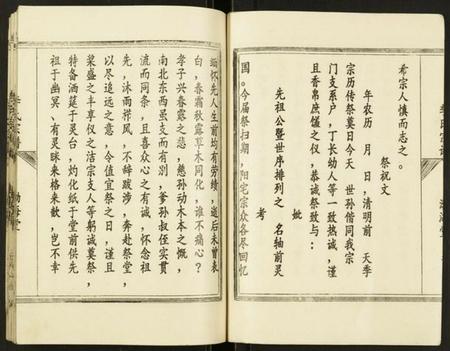 希宗人慎而志之。
祭祝文
年农历 月 日，清明前 天季
宗历传祭奠日今天 世孙偕同我宗
门支系户，丁长幼人等一致热诚，谨
且香帛庶馐之仪，恭诚祭致与：
先祖公暨世序排列之 名轴前灵
考 妣
国。今届祭扫期，阳宅宗众各尽回忆
缅怀先人生前均有劳绩，逝后未曾表
白，春霜秋露草木同化，谁不痛心？
孝子兴春露之悲，慈孙动木本之慨，
南北东西虽支而有别，爹孙叔侄实贯
流而同条，且喜众心之有诚，怀念祖
先，沐雨栉风，不辞跋涉，奔赴祭堂，
以尽追远之意，今值宜祭之日，谨且
粢盛之丰享仪之洁宗支人等躬诚奠祭，
特备酒莚于灵台，灼化纸于堂前俟先
祖于幽冥、有灵眯来格来歆，岂不幸